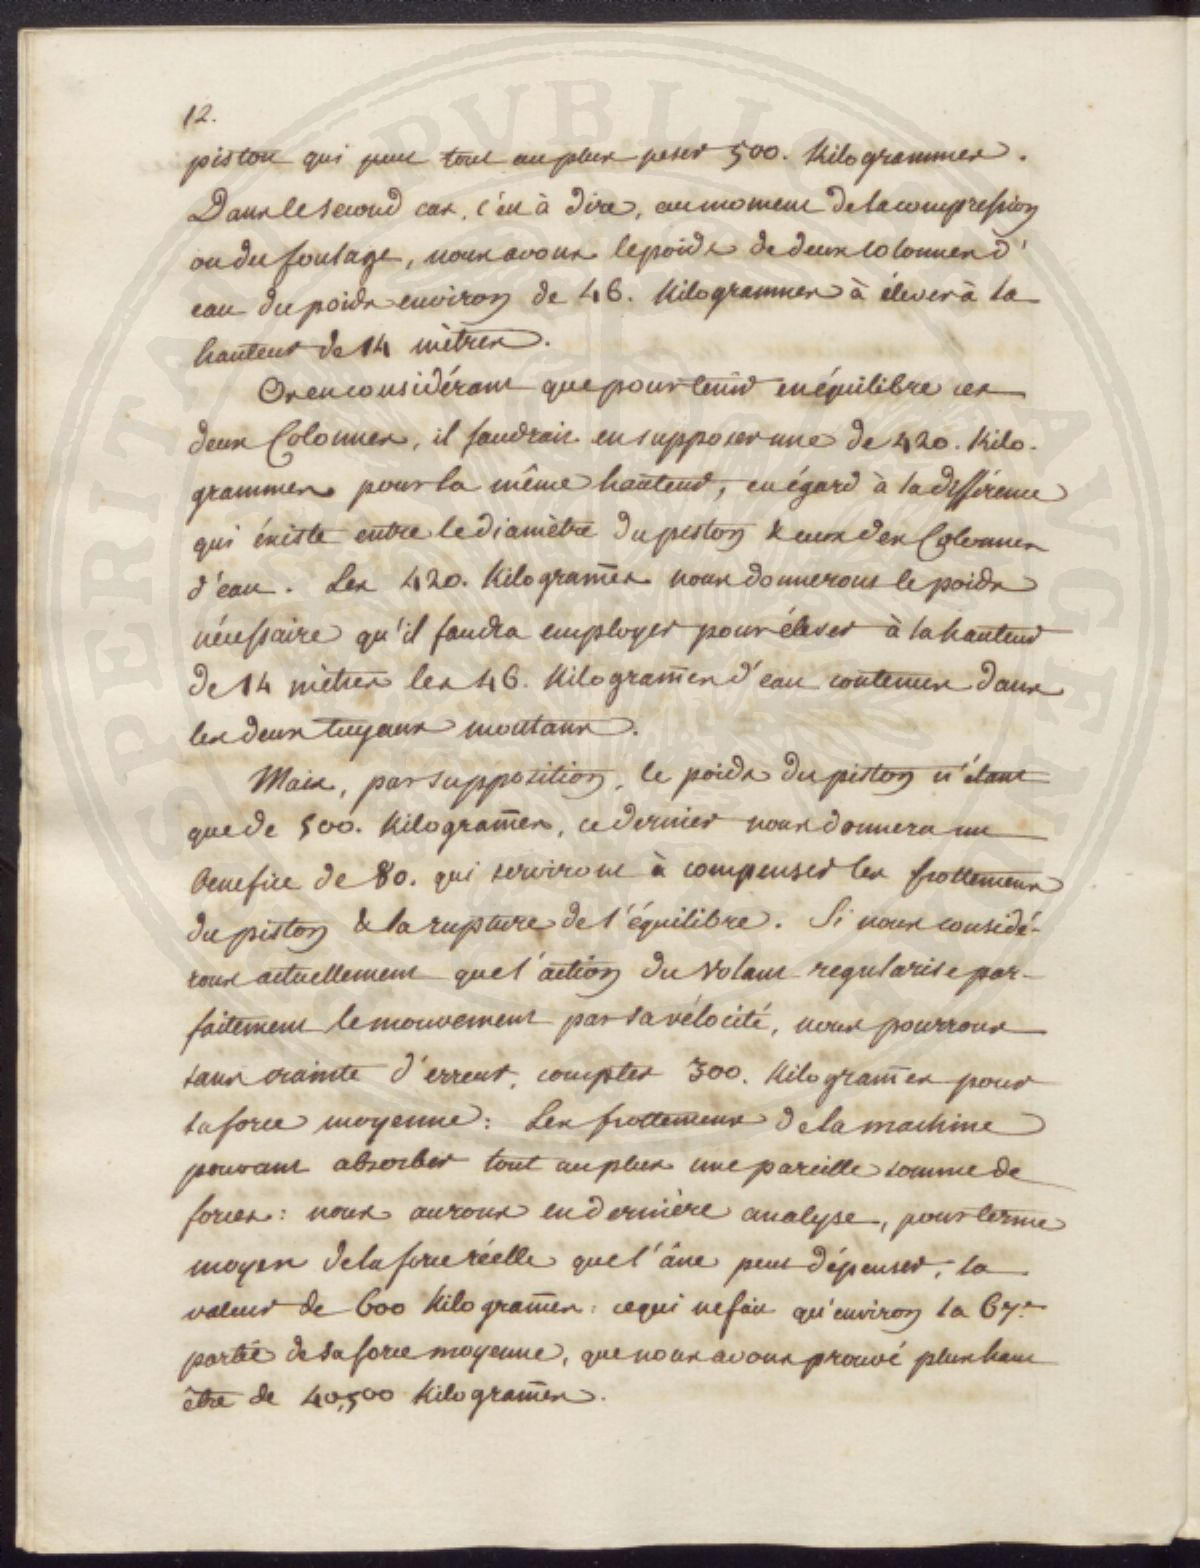 12.
piston qui peut tout au plus peser 500. Kilogrammes.
Dans le second cas, c'est à dire, au moment de la compression
ou du foulage, nous avons le poids de deux colonnes d'
eau du poids environ de 46. Kilogrammes à élever à la
hauteur de 14 mètres.
Or en considérant que pour tenir en équilibre ces
deux Colonnes, il faudrait en supposer une de 420. Kilo-
grammes pour la même hauteur, eu égard à la différence
qui éxiste entre le diamètre du piston & ceux des Colonnes
d'eau. Les 420. Kilogram̄es nous donnerons le poids
nécessaire qu'il faudra employer pour élever à la hauteur
de 14 mètres les 46. Kilogram̄es d'eau contenues dans
les deux tuyaux montans.
Mais, par supposition, le poids du piston n'étant
que de 500. Kilogram̄es, ce dernier nous donnera un
benefice de 80. qui serviront à compenser les frottemens
du piston & la rupture de l'équilibre. Si nous considé-
rons actuellement que l'action du volant regularise par-
faitement le mouvement par sa vélocité, nous pourrons
sans crainte d'erreur, compter 300. Kilogram̄es pour
la force moyenne: Les frottemens de la machine
pouvant absorber tout au plus une pareille somme de
forces: nous aurons en dernière analyse, pour terme
moyen de la force réelle que l'âne peut dépenser, la
valeur de 600 Kilogram̄es: ce qui ne fait qu'environ la 67.e
partie de sa force moyenne, que nous avons prouvé plus haut
être de 40,500 Kilogram̄es.